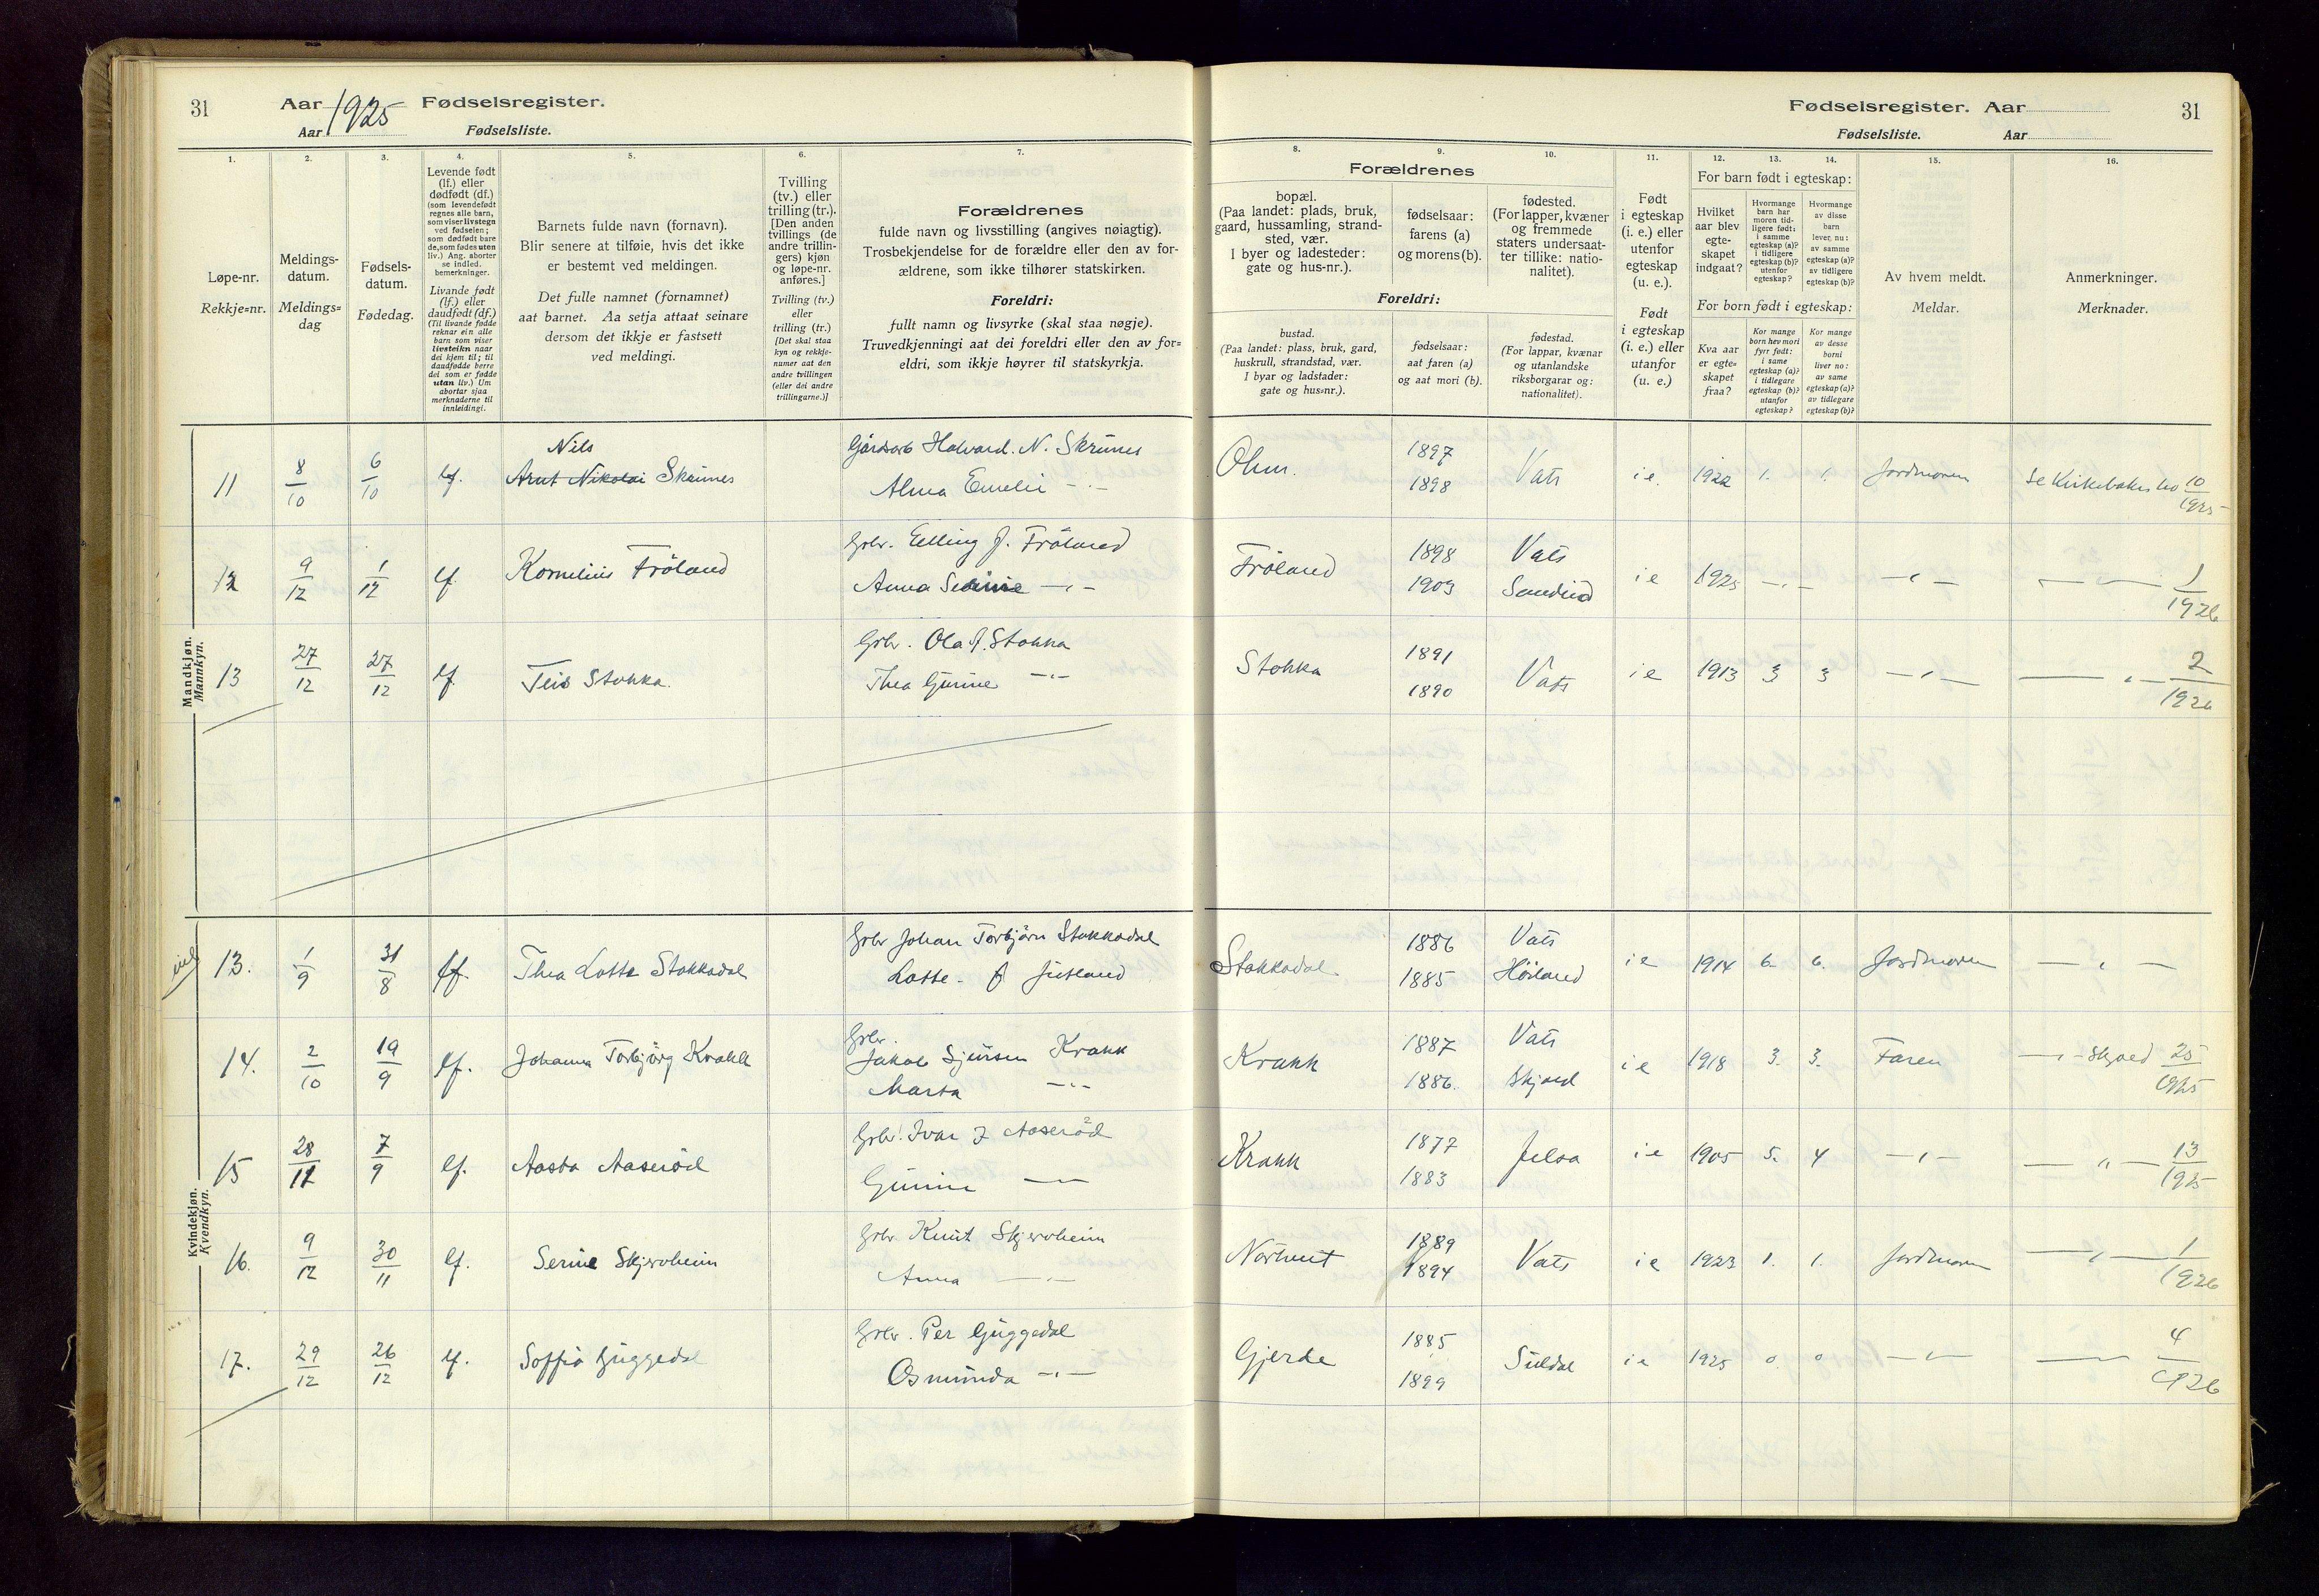 31 Aar 1925 Fødselsregister.
Aar Fødselsliste.
Fødselsregister. Aar 31
Fødselsliste. Aar
1. 2. 3. 4. 5. 6. 7. 8. 9. 10. 11. 12. 13. 14. 15. 16.
Løpe-nr.
Rekkje=nr.
Meldings-
datum.
Meldings=
dag
Fødsels-
datum.
Fødedag.
Levende født
(lf.) eller
dødfødt (df.)
(som levendefødt
regnes alle barn,
som viser livstegn
ved fødselen;
som dødfødt bare
de, som fødes uten
liv.) Ang. aborter
se indled.
bemerkninger.
Livande født
(lf.) eller
daudfødt (df.)
(Til livande fødde
reknar ein alle
barn som viser
livsteikn naar
dei kjem til; til
daudfødde berre
dei som er fødde
utan liv.) Um
abortar sjaa
merknaderne til
innleidingi.
Barnets fulde navn (fornavn).
Blir senere at tilføie, hvis det ikke
er bestemt ved meldingen.
Det fulle namnet (fornamnet)
aat barnet. Aa setja attaat seinare
dersom det ikkje er fastsett
ved meldingi.
Tvilling
(tv.) eller
trilling (tr.).
[Den anden
tvillings (de
andre trillin-
gers) kjøn
og løpe-nr.
anføres.]
Tvilling (tv.)
eller
trilling (tr.)
[Det skal staa
kyn og rekkje-
numer aat den
andre tvillingen
(eller dei andre
trillingarne.)]
Forældrenes
fulde navn og livsstilling (angives nøiagtig).
Trosbekjendelse for de forældre eller den av for-
ældrene, som ikke tilhører statskirken.
Foreldri:
fullt namn og livsyrke (skal staa nøgje).
Truvedkjenningi aat dei foreldri eller den av for=
eldri, som ikkje høyrer til statskyrkja.
Forældrenes
bopæl.
(Paa landet: plads, bruk,
gaard, hussamling, strand-
sted, vær.
I byer og ladesteder:
gate og hus-nr.).
fødselsaar:
farens (a)
og morens (b).
fødested.
(For lapper, kvæner
og fremmede
staters undersaat-
ter tillike: natio-
nalitet).
Foreldri:
bustad.
(Paa landet: plass, bruk, gard,
huskrull, strandstad, vær.
I byar og ladstader:
gate og hus=nr.).
fødselsaar:
aat faren (a)
og aat mori (b).
fødestad.
(For lappar, kvænar
og utanlandske
riksborgarar og:
nationalitet).
Født
i egteskap
(i. e.) eller
utenfor
egteskap
(u. e.).
Født
i egteskap
(i. e.) eller
utanfor
(u. e.)
For barn født i egteskap:
Hvilket
aar blev
egte-
skapet
indgaat?
Hvormange
barn har
moren tid-
ligere født:
i samme
egteskap (a)?
i tidligere
egteskap (b)?
utenfor
egteskap?
Hvormange
av disse
barn
lever nu:
av samme
egteskap (a)?
av tidligere
egteskap (b)?
For born født i egteskap:
Kva aar
er egte=
skapet
fraa?
Kor mange
born hev mori
fyrr født:
i same
egteskap (a)?
i tidlegare
egteskap (b)?
utanfor
egteskap?
Kor mange
av desse
borni
liver no:
av same
egteskap (a)?
av tidlegare
egteskap (b)?
Av hvem meldt.
Meldar.
Anmerkninger.
Merknader.
Mandkjøn.
Mannkyn.
Nils
11 8/10 6/10 lf. Arnt Nikolai Skrunes Halvard. N. Skrunes Alma Emelie Ølen. 1897 1898 Vats i e. 1922 1. 1. Jordmoren Se Kirkeboken no 10/1925
12 9/12 1/12 lf. Kornelius Fröland Grbr. Elling J. Fröland Anna Fröland 1898 1903 Vats Sandeid i e 1925 1/1926
13 27/12 27/12 lf Teis Stokka. Grbr. Ola J. Stokka Thea Gurine Stokka 1891 1890 Vats i e 1913 3 3 2/1926
Kvindekjøn.
Kvendkyn.
13. 1/9 31/8 lf. Thea Lotte Stokkadal Grbr Johan Torbjörn Stokkadal Lotte Stokkadal 1886 1885 Vats i e 1914 6. 6. Jordmoren
14. 2/10 19/9 lf. Johanna Torbjörg Krakk Grbr. Jakob Sjursen Krakk Marta Krakk 1887 1886. Vats Skjold i e 1918 3. 3. Faren Skjold 25/1925
15 28/11 7/9 lf. Aasta Aaseröd Grbr. Ivar J Aaseröd Gurine Krakk 1877 1883 Jelsa i e 1905 5. 4 13/1925
16. 9/12 30/11 lf. Serine Skjerveheim Grbr. Knut Skjerveheim Anna 1889 1894 Vats i e 1923 1. 1. Jordmoren 1/1926
17. 29/12 26/12 lf. Soffia Guggedal Grbr. Per Guggedal Osmunda Gjerde 1885 1899 Suldal i e 1925 0. 0 4/1926